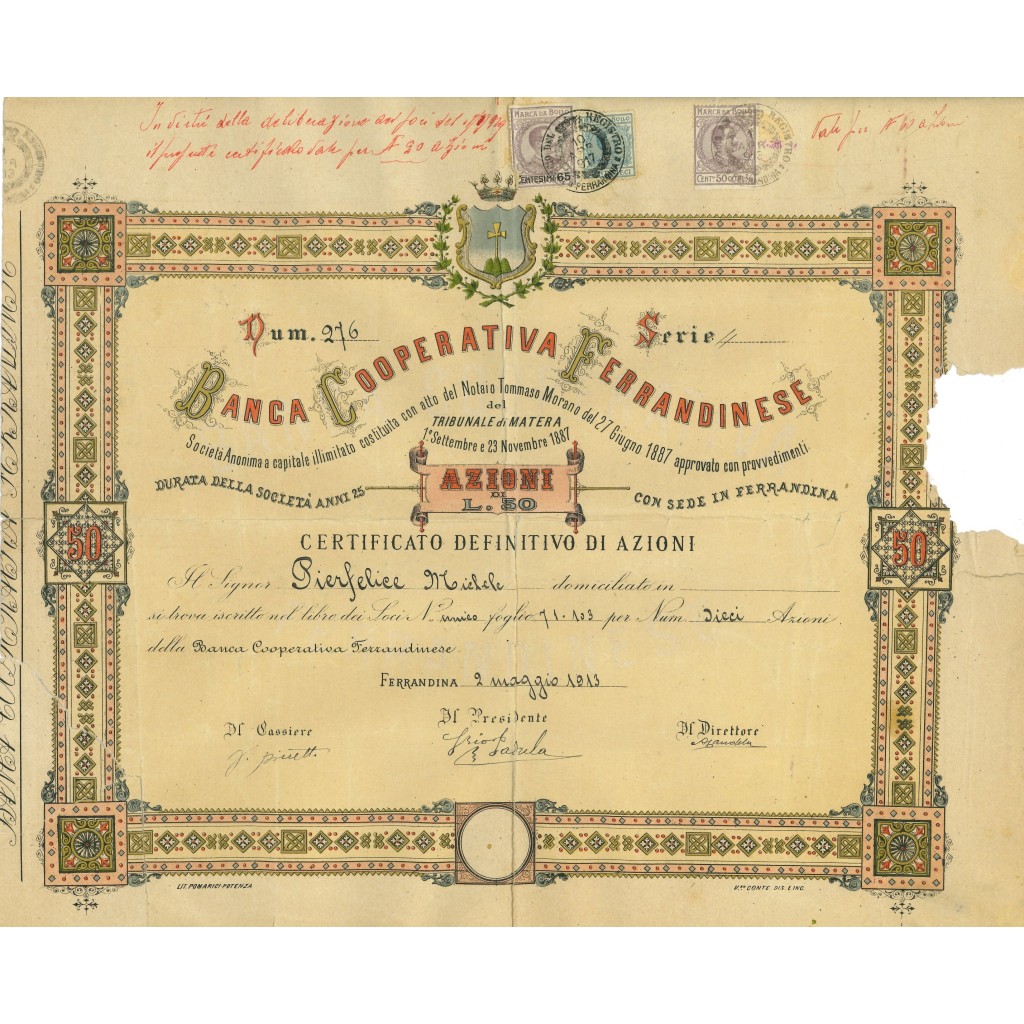 In virtù della deliberazione dei soci del
il presente certificato vale per N 20 azioni
Vale per N
MARCA DA BOLLO
CENTESIMI 65
MARCA DA BOLLO
CENT.MI 50
REGISTRO
FERRANDINA
Num. 276
Serie 4
BANCA COOPERATIVA FERRANDINESE
Società Anonima a capitale illimitato costituita con atto del Notaio Tommaso Morano del 27 Giugno 1887 approvato con provvedimenti
del
TRIBUNALE di MATERA
1º Settembre e 23 Novembre 1887
DURATA DELLA SOCIETÀ ANNI 25
AZIONI
DI
L. 50
CON SEDE IN FERRANDINA
50
50
CERTIFICATO DEFINITIVO DI AZIONI
Il Signor Pierfelice Michele domiciliato in
si trova iscritto nel libro dei Soci Nº unico foglio 71-103 per Num. Dieci Azioni
della Banca Cooperativa Ferrandinese.
FERRANDINA 2 maggio 1913
Il Cassiere
Il Presidente
Il Direttore
LIT. POMARICI-POTENZA
V.zo CONTE DIS. E INC.